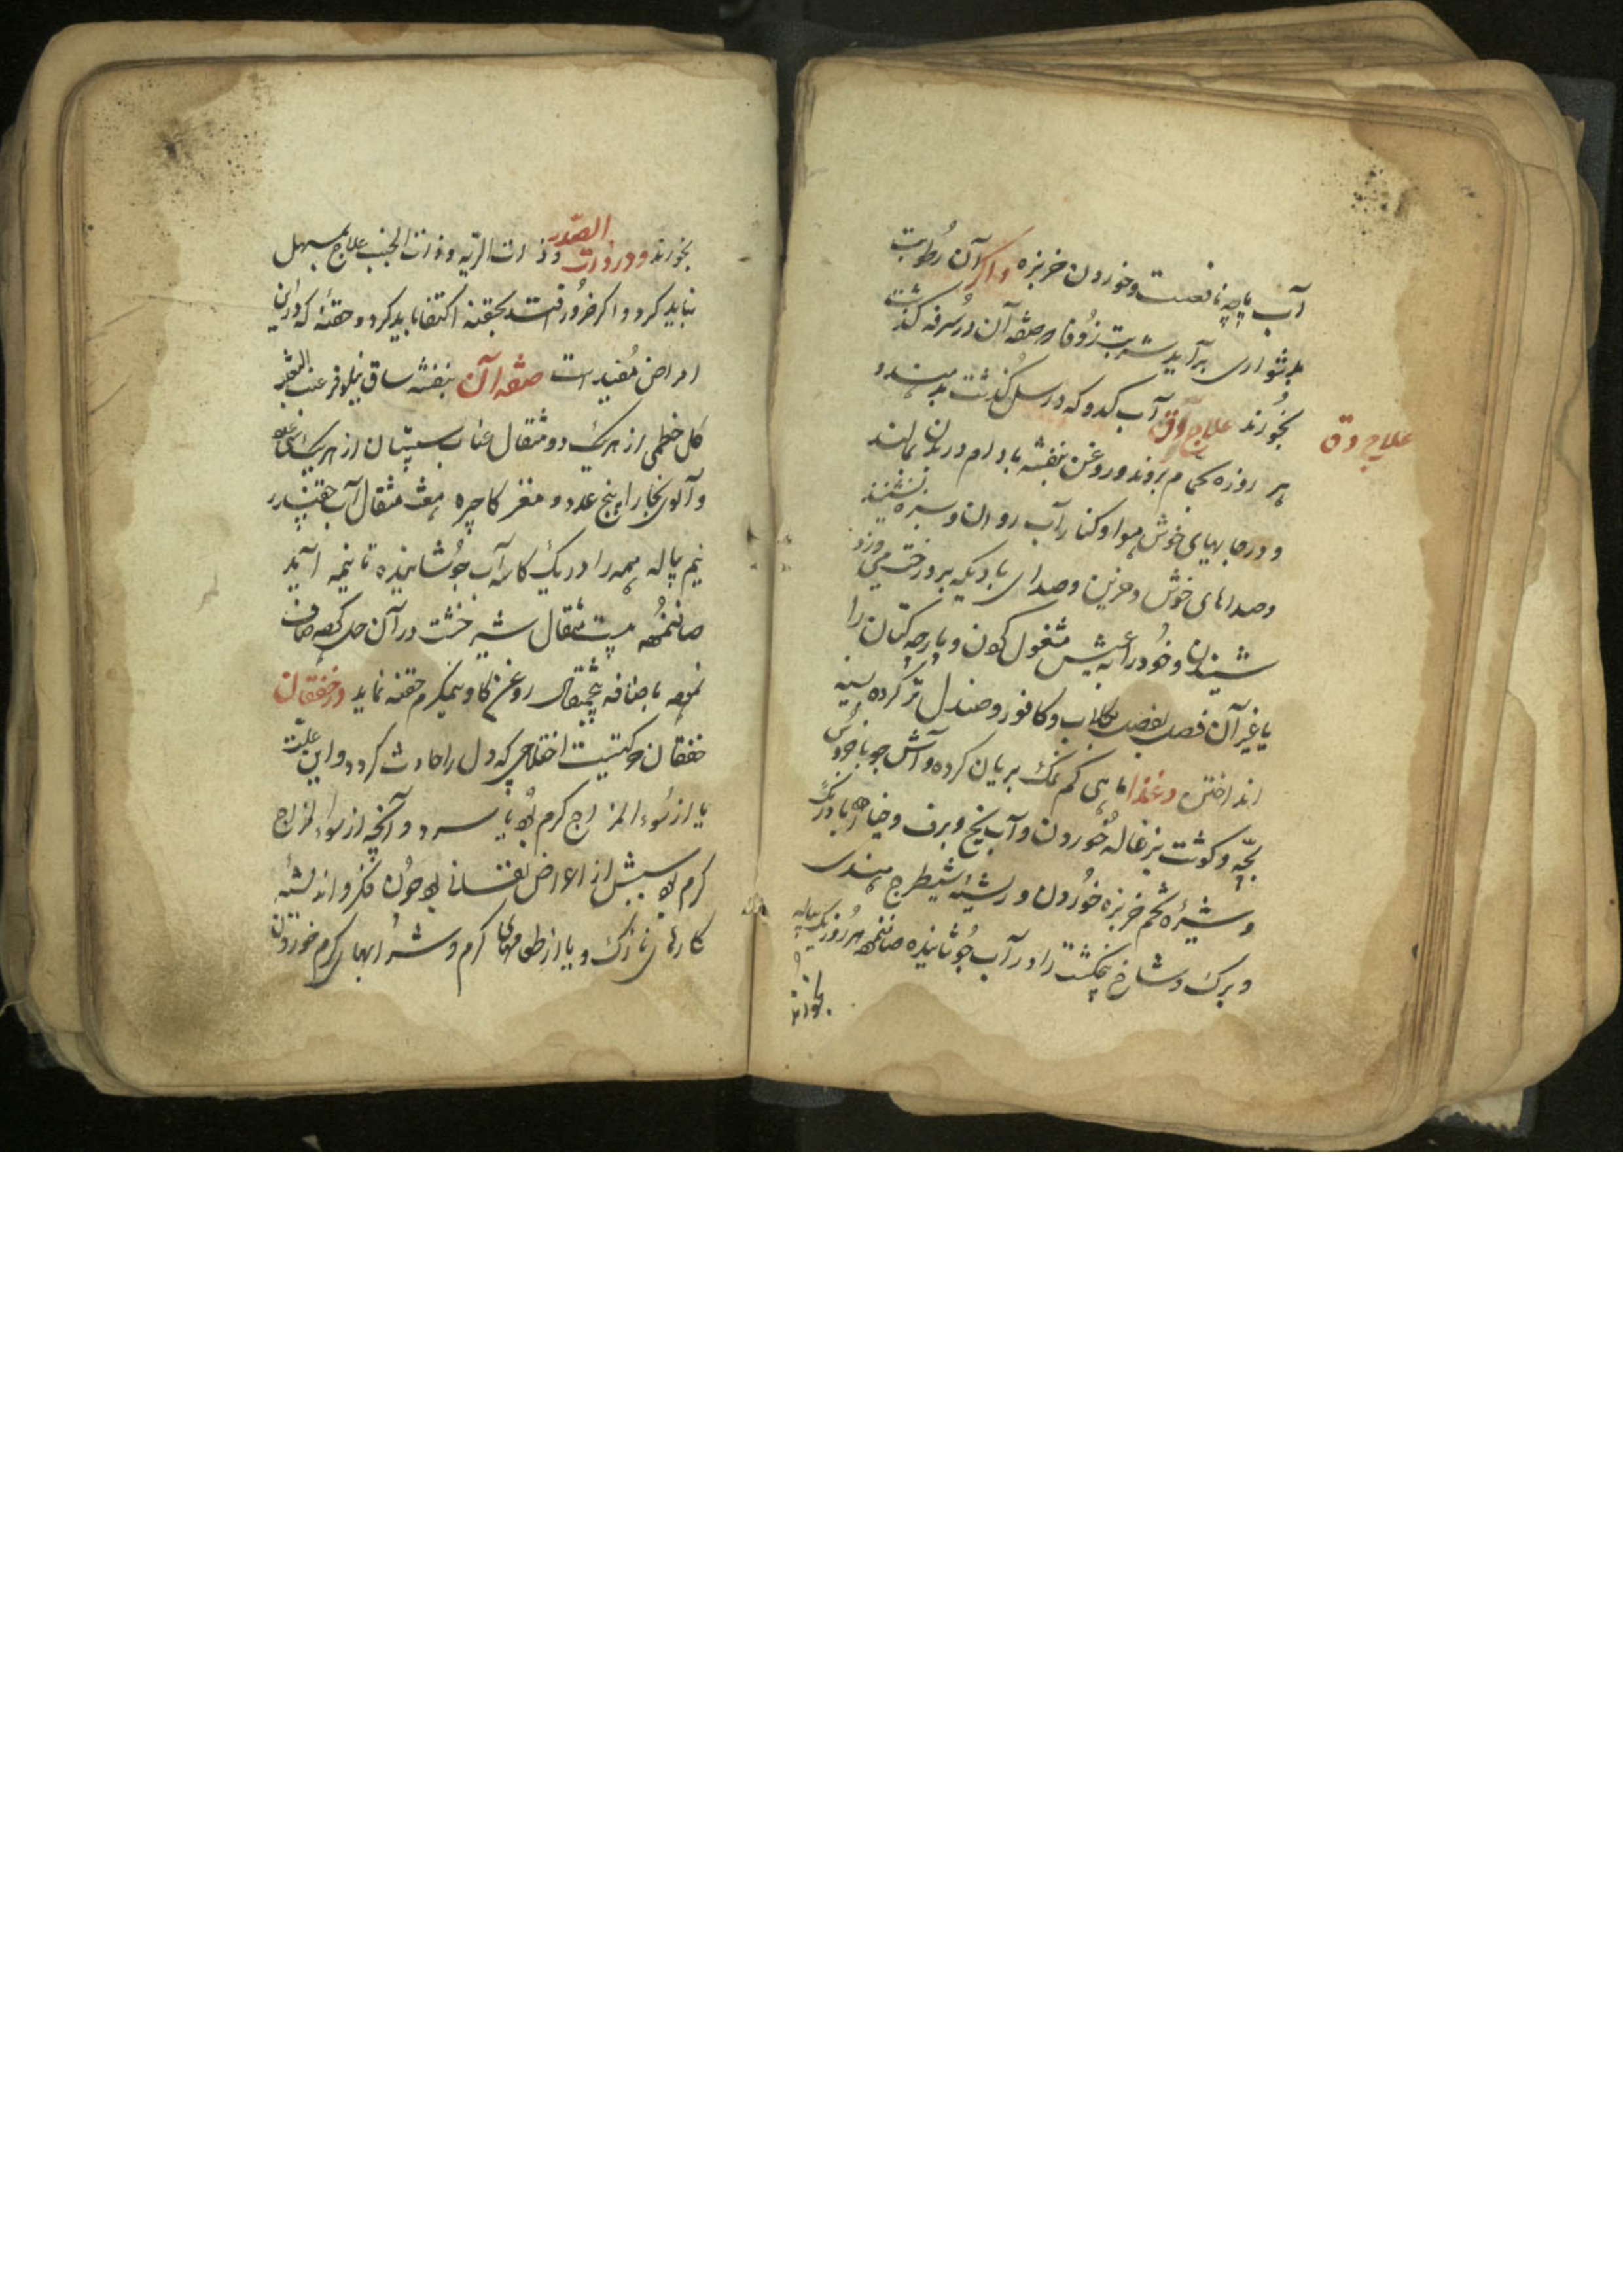 آب پاچه نافعست و خوردن خربزه و اگر آن رطوبت
بدشواری برآید شربت زوفا که صفه آن در سرفه گذشت
بخورند علاج دق آب کدو که در سل گذشت بدهند و
علاج دق
هر روزه بحمام بروند و روغن بنفشه بادام در بدن بمالند
و در جایهای خوش هوا و کنار آب روان و سبزه نشینند
و صداهای خوش و حزین و صدای بادیکه بر درخت می وزد
شنیدن و خود را به عیش مشغول کردن و پارچه کتان را
یا غیر آن بگلاب و کافور و صندل تر کرده بسینه
انداختن و غذا ماهی کم نمک بریان کرده و آش جو با خروس
بچه و گوشت بزغاله خوردن و آب یخ و برف و خیار بادرنگ
و شیره تخم خربزه خوردن و ریشه شیطرج هندی
و برک و شاخ پنجکشت را در آب جوشانیده صاف نموده هر روز یک پیاله
بخورند
بخورند و در ذات الصدر و ذات الریه و ذات الجنب علاج بمسهل
نباید کرد و اگر ضرور افتد بحقنه اکتفا باید کرد و حقنه که در این
امراض مفید است صفه آن بنفشه ساق نیلوفر عنب الثعلب
کل خطمی از هریک دو مثقال عناب سپستان از هریک
و آلوی بخارا پنج عدد و مغز کاجره هفت مثقال آب چقندر
نیم پیاله همه را در یک کاسه آب جوشانیده تا نیمه آید
صاف نموده بیست مثقال شیر خشت در آن حل کرده صاف
نموده باضافه پنجمثقال روغن کاو نیمکرم حقنه نماید در خفقان
خفقان حرکتیست اختلاجی که دل را حادث گردد و این علت
یا از سوء المزاج گرم بود یا سرد و آنچه از سوء المزاج
گرم بود سببش از اعراض نفسانی بود چون فکر و اندیشه
کارهای نازک و یا از طعامهای گرم و شرابهای گرم خوردن